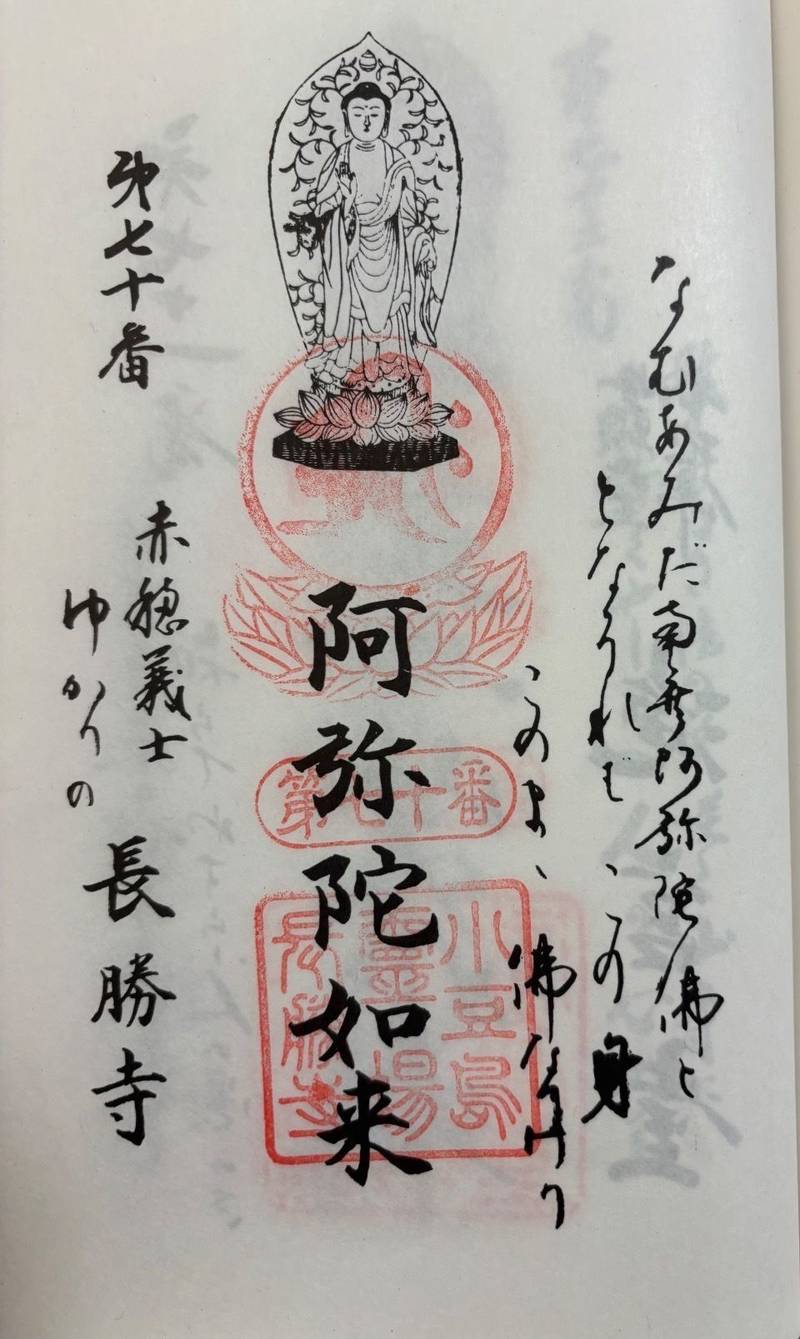 なむあみだ南無阿弥陀佛と
となうれば、この身
このまゝ佛なりけり
阿弥陀如来
第七十番
小豆島
霊場
長勝寺
第七十番
赤穂義士
ゆかりの
長勝寺